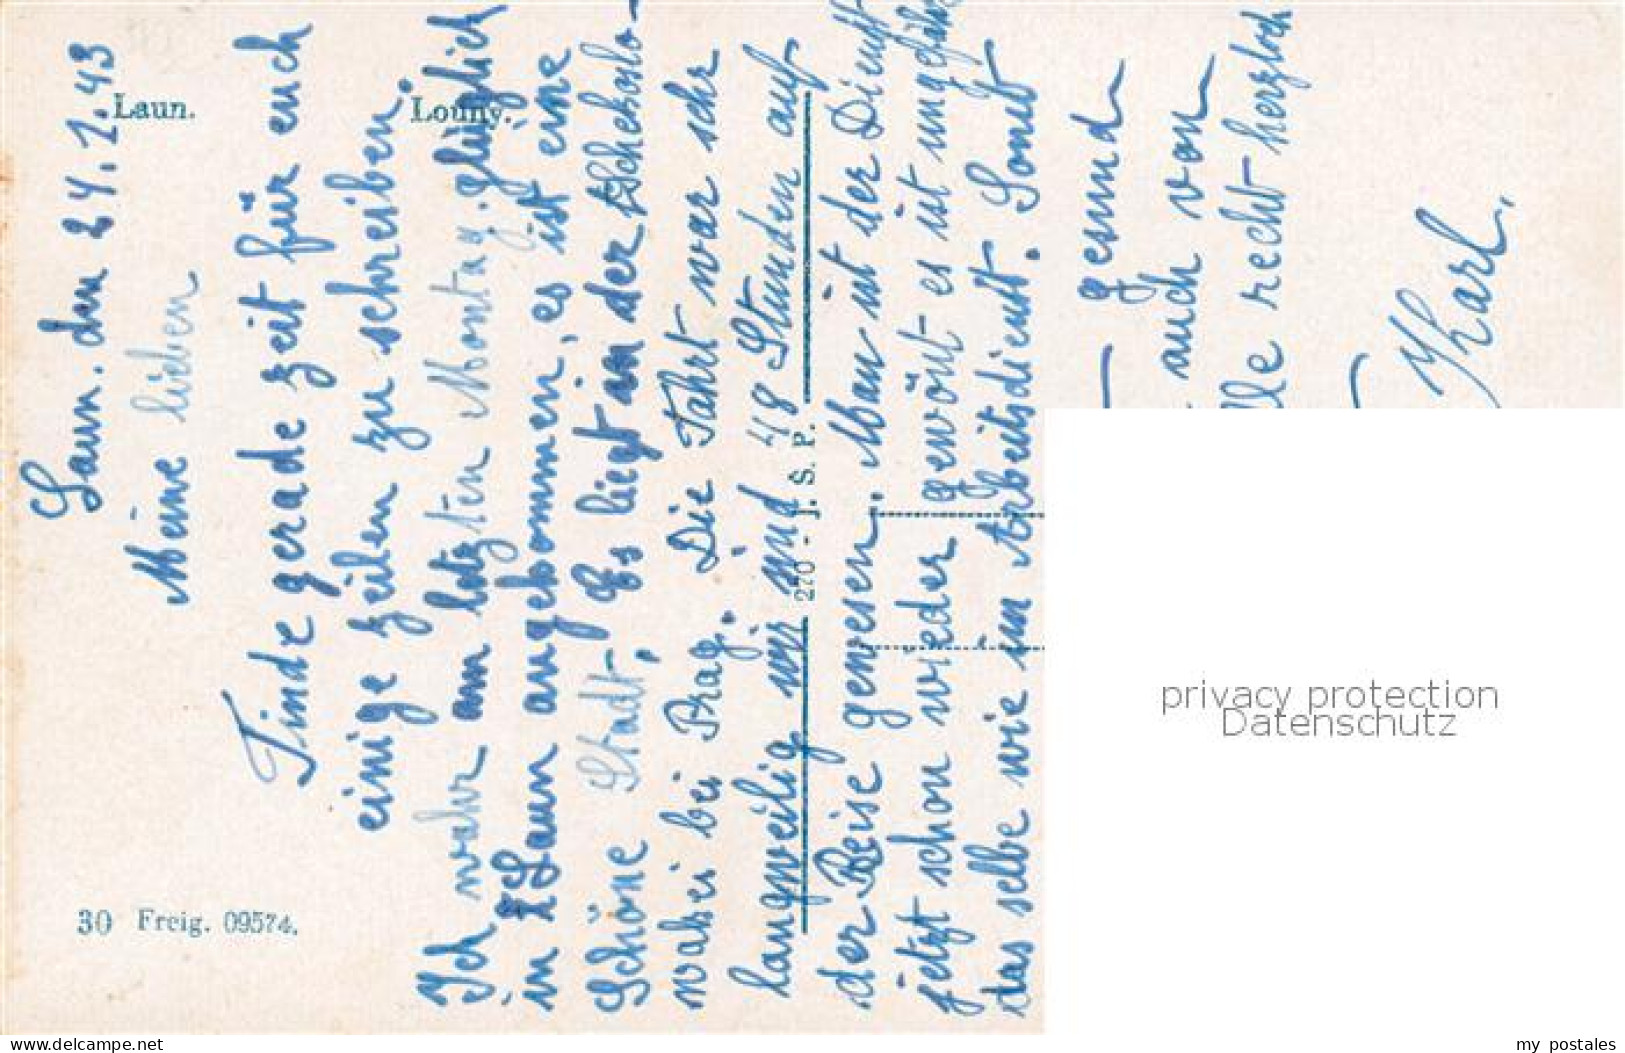 Laun. den 24.1.43
Meine lieben
Finde gerade zeit für euch
einige zeilen zu schreiben.
Ich wahr am letzten Montag glüglich
in Laun angekommen, es ist eine
Schöne Stadt, Es liegt in der Tschekoslo-
wakei bei Prag. Die Fahrt war sehr
langweilig wir sind 48 Stunden auf
der Reise gewesen. Man ist der Dienst
jetzt schon wieder gewönt es ist ungefähr
das selbe wie im Arbeitsdienst. Sonst
gesund
auch von
lle recht herzlich
Karl.
Laun. Louny.
30 Freig. 09574.
270 - J. S. P.
privacy protection
Datenschutz
www.delcampe.net
my_postales